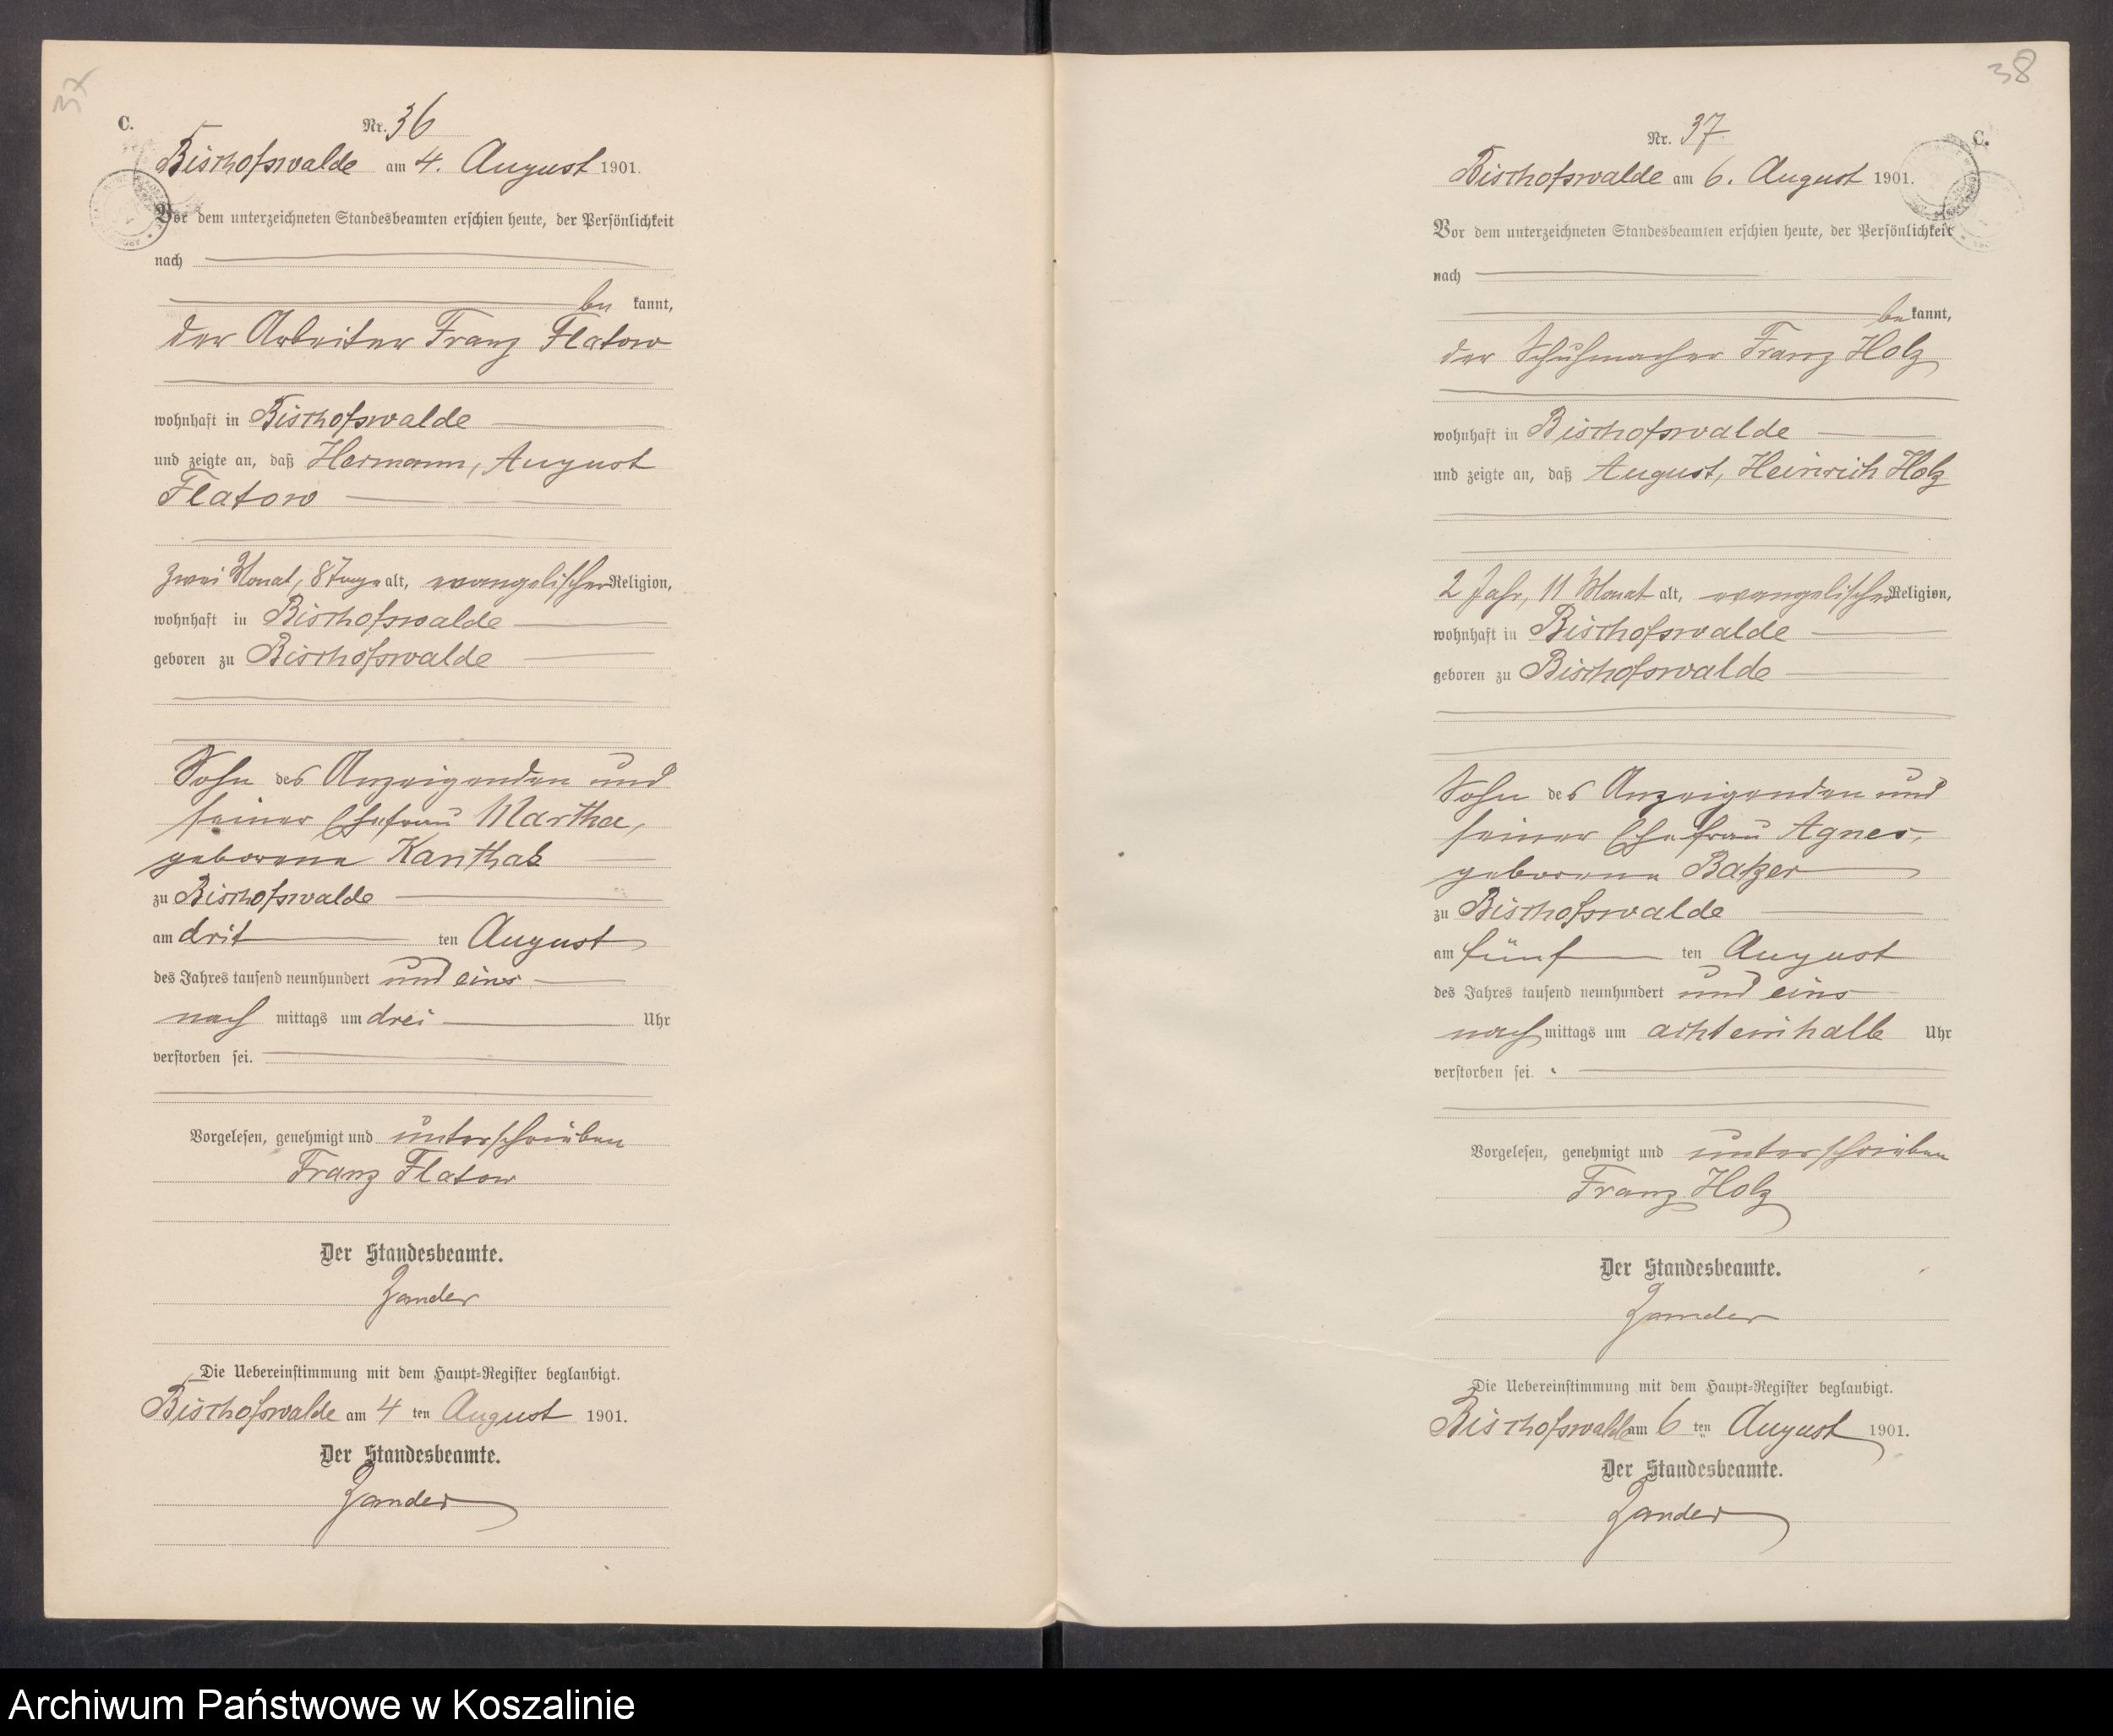 37
C.
Nr. 36
Bischofswalde am 4. August 1901.
Vor dem unterzeichneten Standesbeamten erschien heute, der Persönlichkeit
nach
be kannt,
der Arbeiter Franz Flatow
wohnhaft in Bischofswalde
und zeigte an, daß Hermann, August
Flatow
zwei Monat, 8 Tage alt, evangelischer Religion,
wohnhaft in Bischofswalde
geboren zu Bischofswalde
Sohn des Anzeigenden und
seiner Ehefrau Martha,
geborene Kanthak
zu Bischofswalde
am drit ten August
des Jahres tausend neunhundert und eins
nach mittags um drei Uhr
verstorben sei.
Vorgelesen, genehmigt und unterschrieben
Franz Flatow
Der Standesbeamte.
Zander
Die Uebereinstimmung mit dem Haupt-Register beglaubigt.
Bischofswalde am 4 ten August 1901.
Der Standesbeamte.
Zander
38
C.
Nr. 37
Bischofswalde am 6. August 1901.
Vor dem unterzeichneten Standesbeamten erschien heute, der Persönlichkeit
nach
be kannt,
der Schuhmacher Franz Holz
wohnhaft in Bischofswalde
und zeigte an, daß August, Heinrich Holz
2 Jahr, 11 Monat alt, evangelischer Religion,
wohnhaft in Bischofswalde
geboren zu Bischofswalde
Sohn des Anzeigenden und
seiner Ehefrau Agnes,
geborene Batzer
zu Bischofswalde
am fünf ten August
des Jahres tausend neunhundert und eins
nach mittags um achteinhalb Uhr
verstorben sei.
Vorgelesen, genehmigt und unterschrieben
Franz Holz
Der Standesbeamte.
Zander
Die Uebereinstimmung mit dem Haupt-Register beglaubigt.
Bischofswalde am 6 ten August 1901.
Der Standesbeamte.
Zander
Archiwum Państwowe w Koszalinie